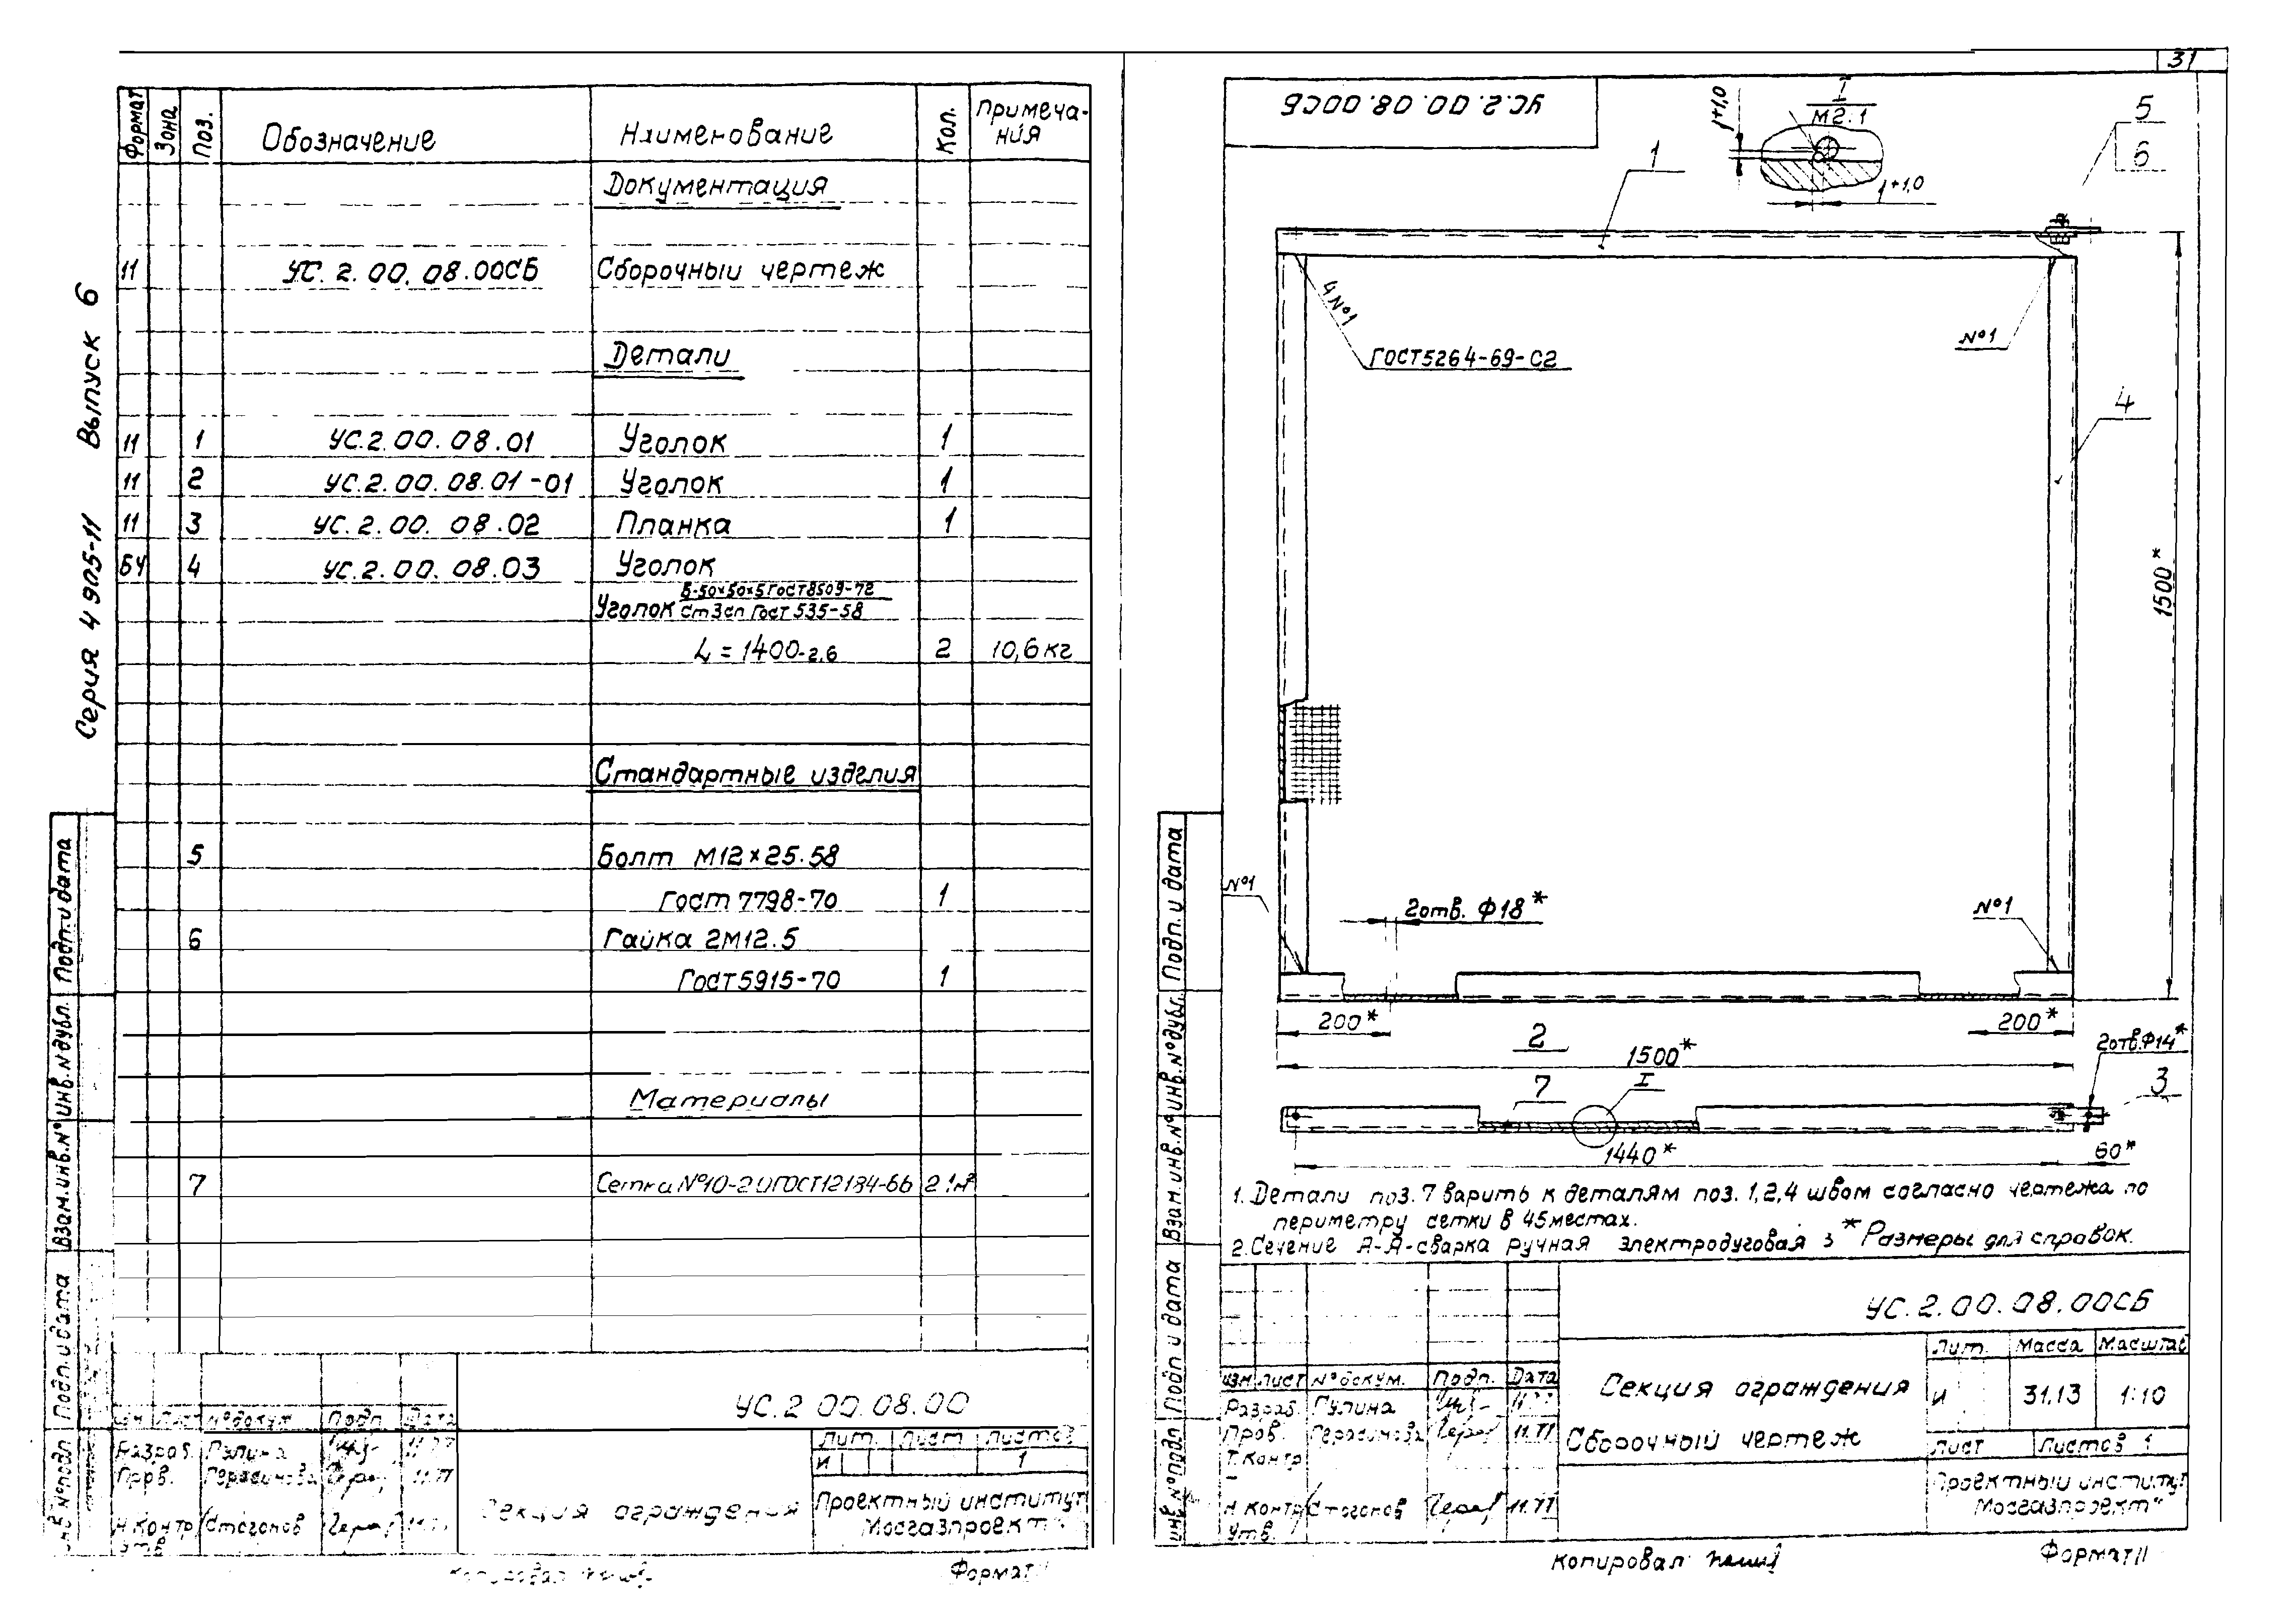 31
Серия 4 905-11 Выпуск 6
Формат Зона Поз. Обозначение Наименование Кол. Примеча-
ния
Документация
11 УС.2.00.08.00СБ Сборочный чертеж
Детали
11 1 УС.2.00.08.01 Уголок 1
11 2 УС.2.00.08.01-01 Уголок 1
11 3 УС.2.00.08.02 Планка 1
БЧ 4 УС.2.00.08.03 Уголок
Б-50×50×5 Гост 8509-72
Уголок Ст3сп Гост 535-58
L = 1400-2,6 2 10,6 кг
Стандартные изделия
5 Болт М12×25.58
Гост 7798-70 1
6 Гайка 2М12.5
Гост 5915-70 1
Материалы
7 Сетка №10-2 0 ГОСТ 12184-66 2 1м²
Подп. и дата
Инв.№дубл.
Взам.инв.№
Подп. и дата
Инв №подл
Изм Лист №докум Подп Дата
Разраб. Гулина 11.77
Пров. Герасимова 11.77
Н Контр Стогонов
Утв
УС.2 00.08.00
Секция ограждения
Лит. Лист Листов
И 1
Проектный институт
Мосгазпроект"
Копировал
Формат 11
УС.2.00.08.00СБ
I
М2:1
1+1,0
1+1,0
1
5
6
4 №1
ГОСТ5264-69-С2
№1
4
1500*
№1
2отв. Ф18*
№1
200*
200*
2
1500*
2отв.Ф14*
7
I
3
1440*
60*
1. Детали поз. 7 варить к деталям поз. 1,2,4 швом согласно чертежа по
периметру сетки в 45 местах.
2. Сечение А-А-сварка ручная электродуговая 3 * Размеры для справок.
Подп. и дата
Инв.№дубл.
Взам.инв.№
Подп и дата
Инв №подл
УС.2.00.08.00СБ
Изм Лист №докум. Подп. Дата
Разраб. Гулина 11.77
Пров. Герасимова 11.77
Т. Контр
Н Контр Стогонов 11.77
Утв.
Секция ограждения
Сборочный чертеж
Лит. Масса Масштаб
И 31.13 1:10
Лист Листов 1
Проектный институт
Мосгазпроект"
Копировал
Формат 11